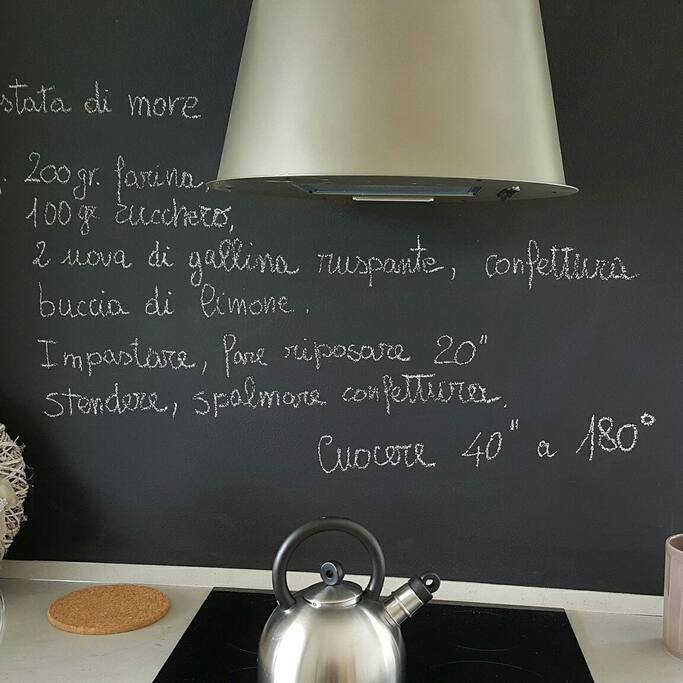 stata di more
200gr. farina,
100gr zucchero,
2 uova di gallina ruspante, confettura
buccia di limone.
Impastare, fare riposare 20"
stendere, spalmare confettura.
Cuocere 40" a 180°